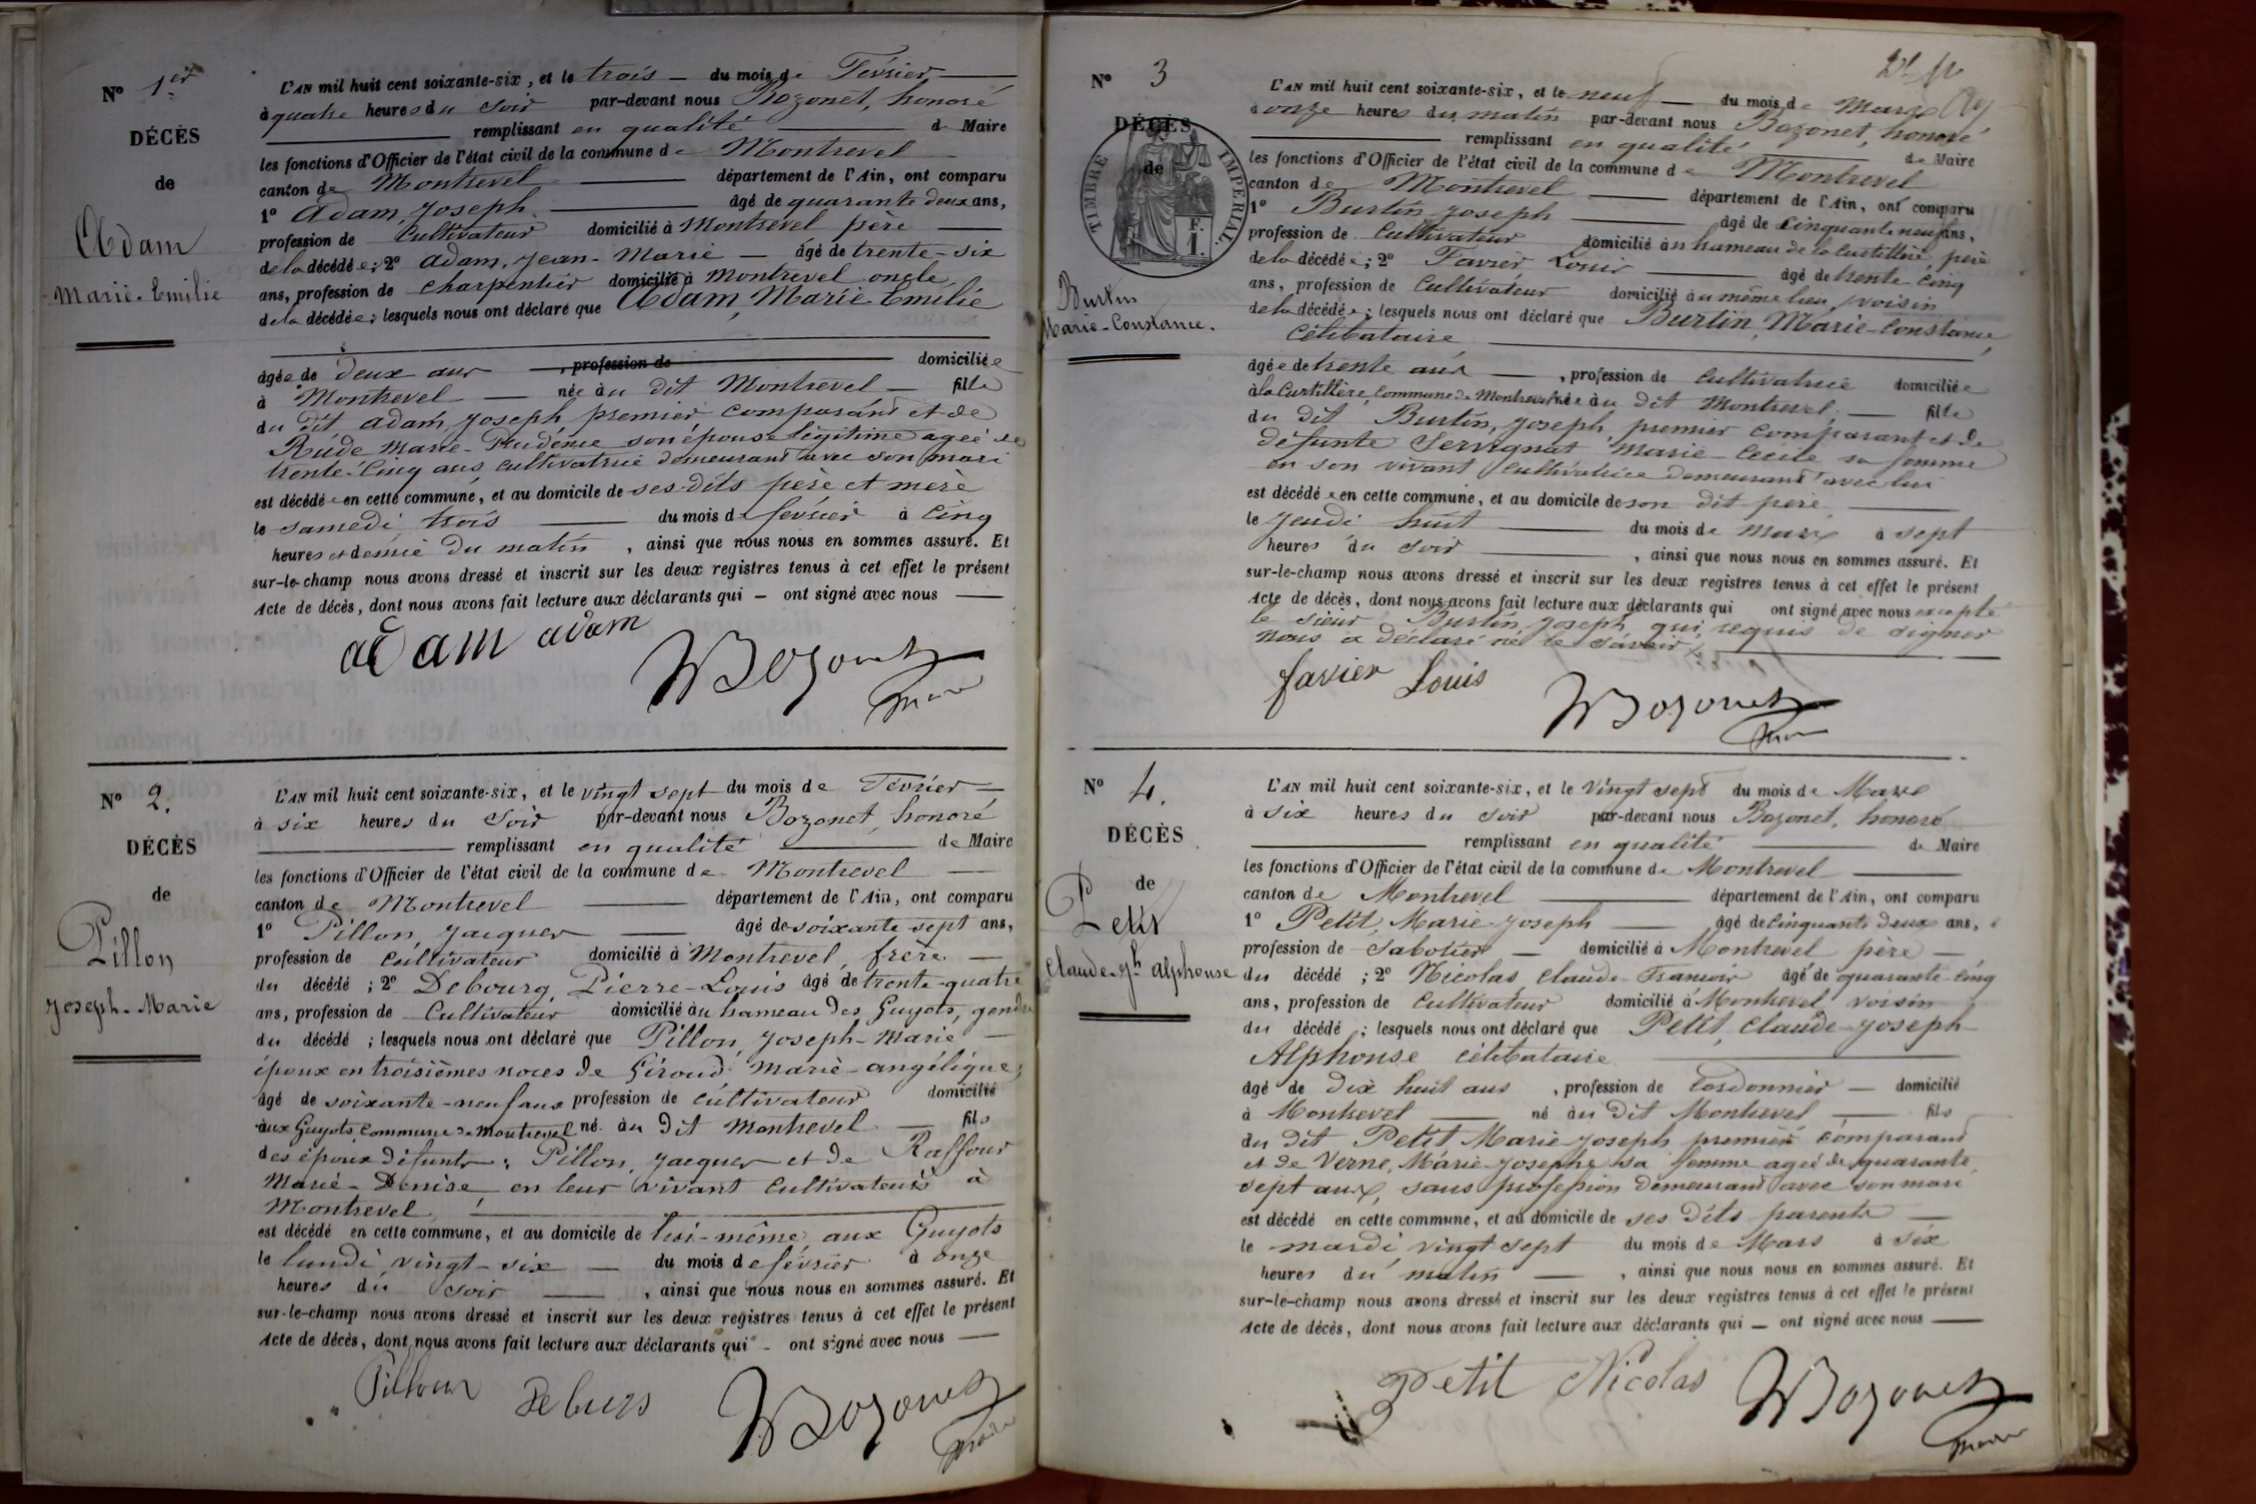 N° 1er
DÉCÈS
de
Adam
Marie-Emilie
L'AN mil huit cent soixante-six, et le trois — du mois de Février —
à quatre heures du soir par-devant nous Bozonet, honoré
remplissant en qualité — de Maire
les fonctions d'Officier de l'état civil de la commune de Montrevel
canton de Montrevel — département de l'Ain, ont comparu
1° Adam, Joseph — âgé de quarante deux ans,
profession de Cultivateur domicilié à Montrevel père —
de la décédée; 2° Adam, Jean-Marie — âgé de trente-six
ans, profession de charpentier domicilié à Montrevel oncle
de la décédée; lesquels nous ont déclaré que Adam, Marie-Emilie
âgée de deux ans , profession de domiciliée
à Montrevel — née au dit Montrevel — fille
du dit Adam, Joseph premier comparant et de
Rude Marie-Prudence son épouse légitime agée de
trente-cinq ans, cultivatrice demeurant avec son mari
est décédée en cette commune, et au domicile de ses dits père et mère
le samedi trois — du mois de février à cinq
heures et demie du matin , ainsi que nous nous en sommes assuré. Et
sur-le-champ nous avons dressé et inscrit sur les deux registres tenus à cet effet le présent
Acte de décès, dont nous avons fait lecture aux déclarants qui — ont signé avec nous —
adam adam Bozonet
Maire
N° 2.
DÉCÈS
de
Pillon
Joseph-Marie
L'AN mil huit cent soixante-six, et le vingt sept du mois de Février —
à six heures du soir par-devant nous Bozonet, honoré
remplissant en qualité — de Maire
les fonctions d'Officier de l'état civil de la commune de Montrevel —
canton de Montrevel — département de l'Ain, ont comparu
1° Pillon, Jacques — âgé de soixante sept ans,
profession de cultivateur domicilié à Montrevel, frère —
du décédé ; 2° Debourg, Pierre-Louis âgé de trente-quatre
ans, profession de Cultivateur domicilié au hameau des Guyots, gendre
du décédé ; lesquels nous ont déclaré que Pillon, Joseph-Marie —
époux en troisièmes noces de Giroud Marie-angélique,
âgé de soixante-neuf ans profession de cultivateur domicilié
aux Guyots, commune de Montrevel né au dit Montrevel — fils
des époux défunts: Pillon, Jacques et de Raffour
Marie-Denise en leur vivant cultivateurs à
Montrevel, —
est décédé en cette commune, et au domicile de lui-même aux Guyots
le lundi vingt-six — du mois de février à onze
heures du soir — , ainsi que nous nous en sommes assuré. Et
sur-le-champ nous avons dressé et inscrit sur les deux registres tenus à cet effet le présent
Acte de décès, dont nous avons fait lecture aux déclarants qui - ont signé avec nous —
Pillon Bozonet
Maire
N° 3
DÉCÈS
de
TIMBRE IMPERIAL.
F.
1.
Burtin
Marie-Constance.
L'AN mil huit cent soixante-six, et le neuf — du mois de Mars
à onze heures du matin par-devant nous Bozonet, honoré
remplissant en qualité — de Maire
les fonctions d'Officier de l'état civil de la commune de Montrevel
canton de Montrevel — département de l'Ain, ont comparu
1° Burtin, Joseph — âgé de cinquante neuf ans,
profession de Cultivateur domicilié au hameau de la Curtillière père
de la décédée; 2° Favier, Louis — âgé de trente cinq
ans, profession de Cultivateur domicilié au même lieu, voisin
de la décédée; lesquels nous ont déclaré que Burtin, Marie-Constance,
célibataire —
âgée de trente ans — , profession de cultivatrice domiciliée
à la Curtillière, commune de Montrevel née au dit Montrevel, — fille
du dit Burtin, Joseph, premier comparant et de
défunte Servignat Marie-Cécile sa femme
en son vivant cultivatrice demeurant avec lui
est décédée en cette commune, et au domicile de son dit père —
le jeudi huit — du mois de Mars à sept
heures du soir — , ainsi que nous nous en sommes assuré. Et
sur-le-champ nous avons dressé et inscrit sur les deux registres tenus à cet effet le présent
Acte de décès, dont nous avons fait lecture aux déclarants qui ont signé avec nous excepté
le sieur Burtin, Joseph qui, requis de signer
nous a déclaré ne le savoir. —
favier Louis Bozonet
Maire
N° 4.
DÉCÈS
de
Petit
Claude-Jh Alphonse
L'AN mil huit cent soixante-six, et le vingt sept du mois de Mars
à six heures du soir par-devant nous Bozonet, honoré
remplissant en qualité — de Maire
les fonctions d'Officier de l'état civil de la commune de Montrevel —
canton de Montrevel — département de l'Ain, ont comparu
1° Petit, Marie-Joseph — âgé de cinquante deux ans,
profession de Sabotier — domicilié à Montrevel père —
du décédé ; 2° Nicolas, Claude-François âgé de quarante-cinq
ans, profession de Cultivateur domicilié à Montrevel voisin
du décédé ; lesquels nous ont déclaré que Petit, Claude-Joseph-
Alphonse célibataire —
âgé de dix huit ans , profession de Cordonnier — domicilié
à Montrevel — né au dit Montrevel — fils
du dit Petit Marie-Joseph premier comparant
et de Verne, Marie-Josephe sa femme agée de quarante
sept ans, sans profession demeurant avec son mari
est décédé en cette commune, et au domicile de ses dits parents —
le mardi vingt sept du mois de Mars à six
heures du matin — , ainsi que nous nous en sommes assuré. Et
sur-le-champ nous avons dressé et inscrit sur les deux registres tenus à cet effet le présent
Acte de décès, dont nous avons fait lecture aux déclarants qui — ont signé avec nous —
Petit Nicolas Bozonet
Maire